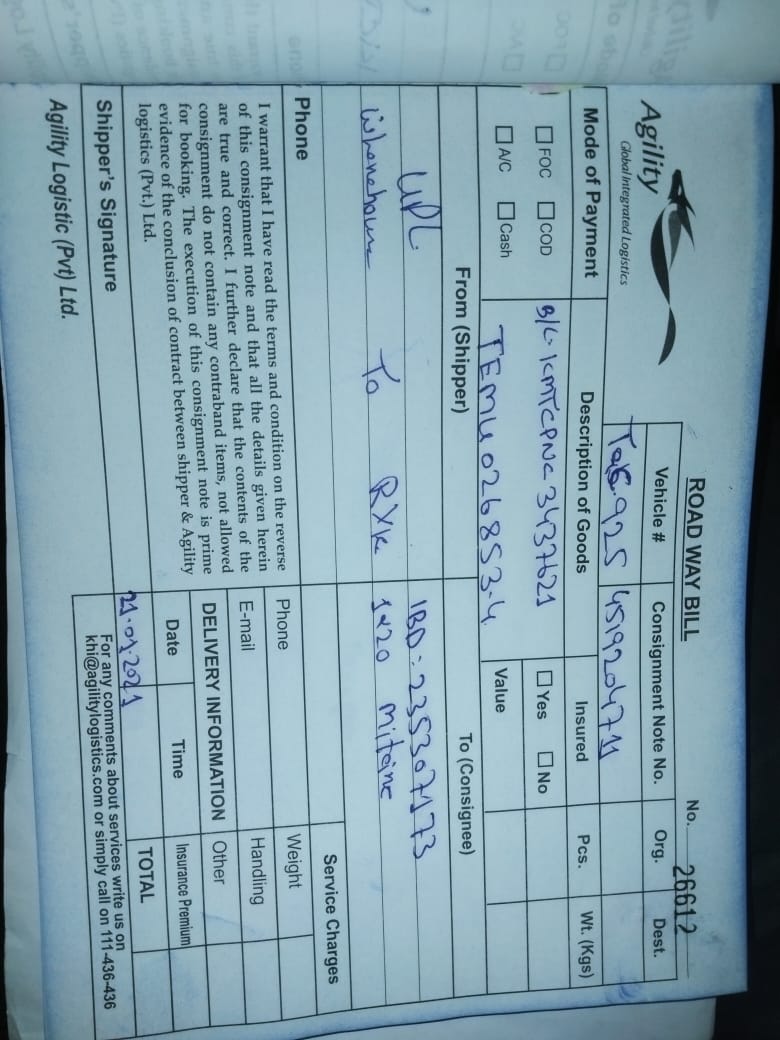 ROAD WAY BILL
No. 26612
Agility
Global Integrated Logistics
Vehicle # Consignment Note No. Org. Dest.
925 4519204711
Mode of Payment Description of Goods Insured Pcs. Wt. (Kgs)
FOC COD B/L. KMTCPNC 3437621 Yes No
A/C Cash TEMU 026853-4 Value
From (Shipper) To (Consignee)
UPL IBD: 235307173
To RYK 1x20
Service Charges
Phone Phone Weight
I warrant that I have read the terms and condition on the reverse
of this consignment note and that all the details given herein
are true and correct. I further declare that the contents of the
consignment do not contain any contraband items, not allowed
for booking. The execution of this consignment note is prime
evidence of the conclusion of contract between shipper & Agility
logistics (Pvt.) Ltd.
E-mail Handling
DELIVERY INFORMATION Other
Date Time Insurance Premium
21.01.2021 TOTAL
Shipper's Signature
For any comments about services write us on
khi@agilitylogistics.com or simply call on 111-436-436
Agility Logistic (Pvt) Ltd.